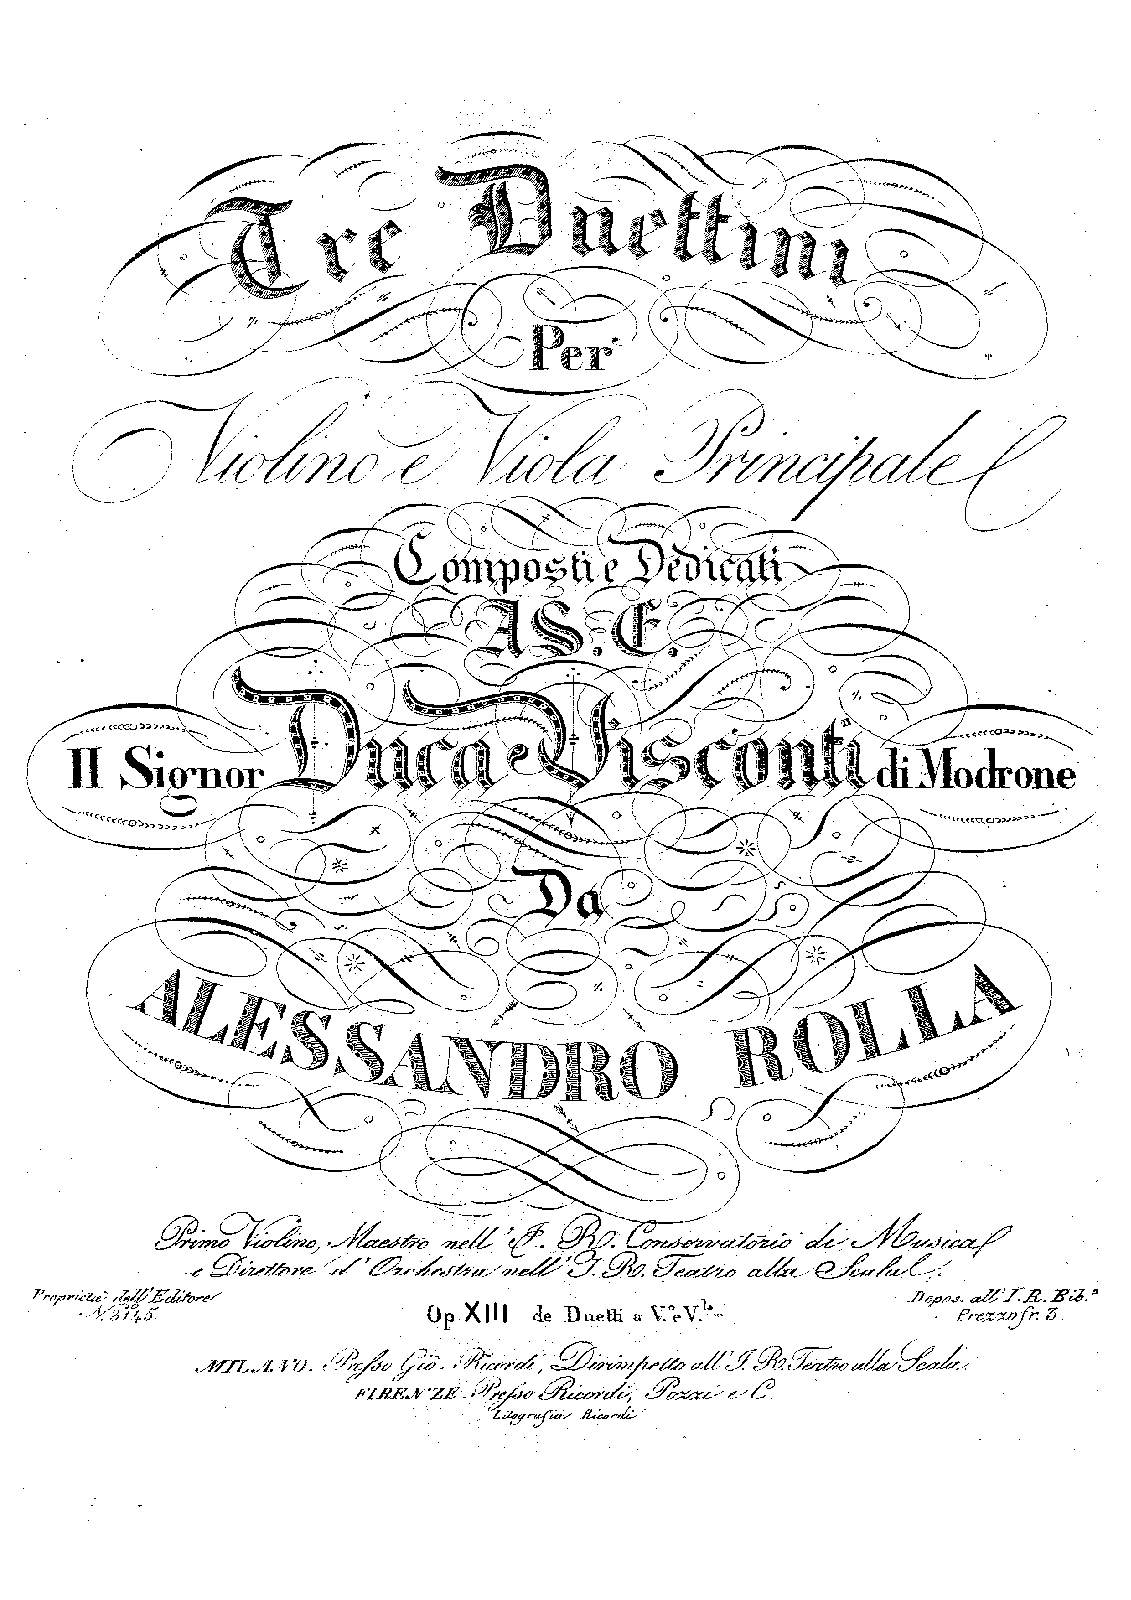 Tre Duettini
Per
Violino e Viola Principale
Composti e Dedicati
A S. E.
Il Signor Duca Visconti di Modrone
Da
ALESSANDRO ROLLA
Primo Violino, Maestro nell' I. R. Conservatorio di Musica
e Direttore d' Orchestra nell' I. R. Teatro alla Scala.
Proprietà dell' Editore
Depos. all' I. R. Bib.a
Op XIII de Duetti a V.o e V.la
Prezzo fr. 3.
MILANO. Presso Gio. Ricordi, Dirimpetto all' I. R. Teatro alla Scala.
FIRENZE. Presso Ricordi, Pozzi e C.
Litografia Ricordi